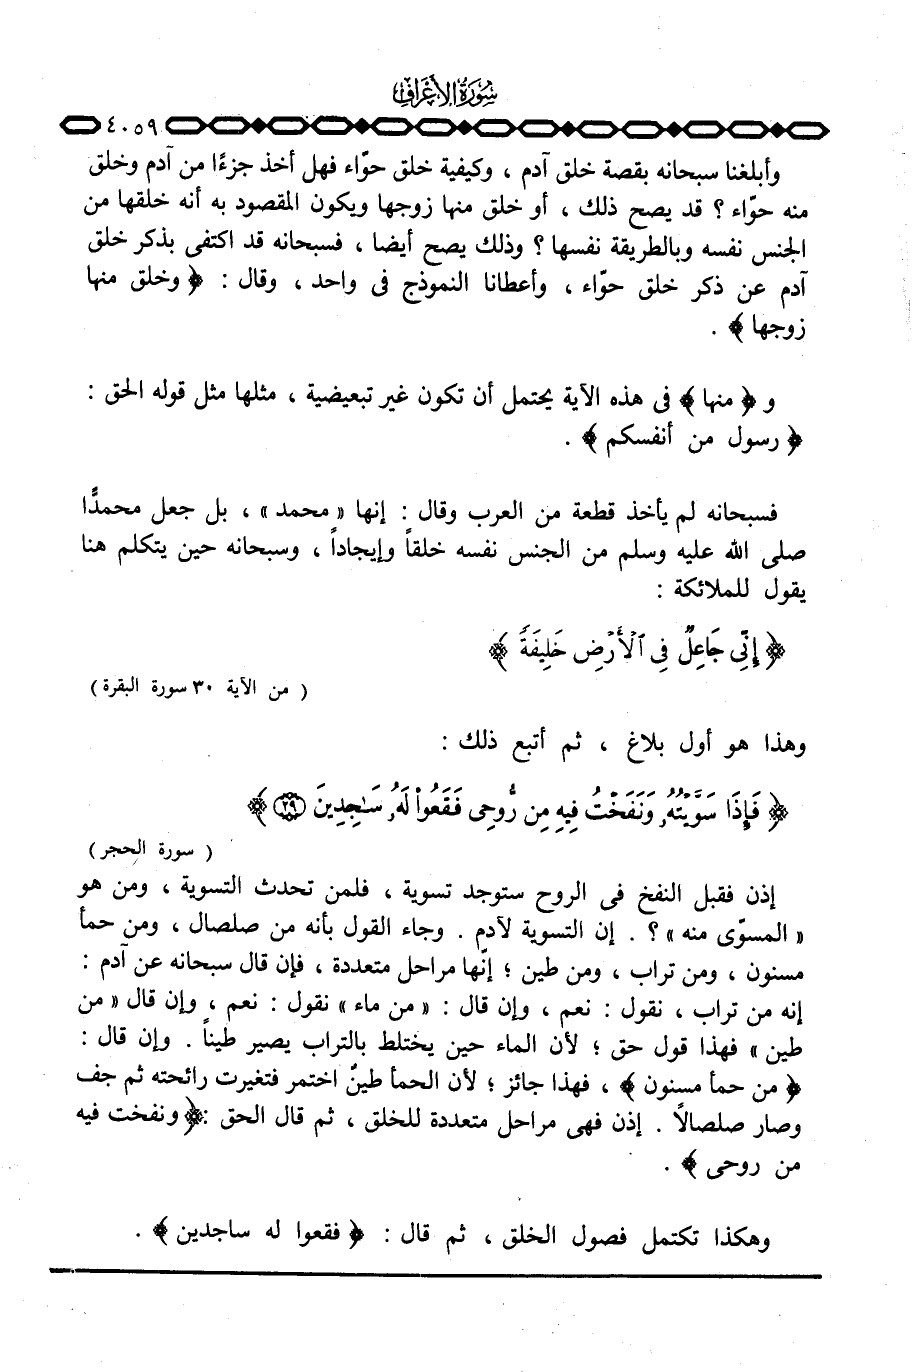 سُورَةُ الأَعْرَافِ
٤٠٥٩
وأبلغنا سبحانه بقصة خلق آدم ، وكيفية خلق حوّاء فهل أخذ جزءًا من آدم وخلق
منه حوّاء ؟ قد يصح ذلك ، أو خلق منها زوجها ويكون المقصود به أنه خلقها من
الجنس نفسه وبالطريقة نفسها ؟ وذلك يصح أيضا ، فسبحانه قد اكتفى بذكر خلق
آدم عن ذكر خلق حوّاء ، وأعطانا النموذج فى واحد ، وقال : ﴿ وخلق منها
زوجها ﴾ .
و ﴿ منها ﴾ فى هذه الآية يحتمل أن تكون غير تبعيضية ، مثلها مثل قوله الحق :
﴿ رسول من أنفسكم ﴾ .
فسبحانه لم يأخذ قطعة من العرب وقال : إنها « محمد » ، بل جعل محمدًّا
صلى الله عليه وسلم من الجنس نفسه خلقاً وإيجاداً ، وسبحانه حين يتكلم هنا
يقول للملائكة :
﴿ إِنِّى جَاعِلٌ فِى ٱلْأَرْضِ خَلِيفَةً ﴾
( من الآية ٣٠ سورة البقرة )
وهذا هو أول بلاغ ، ثم أتبع ذلك :
﴿ فَإِذَا سَوَّيْتُهُۥ وَنَفَخْتُ فِيهِ مِن رُّوحِى فَقَعُوا۟ لَهُۥ سَـٰجِدِينَ ٢٩ ﴾
( سورة الحجر )
إذن فقبل النفخ فى الروح ستوجد تسوية ، فلمن تحدث التسوية ، ومن هو
« المسوّى منه » ؟ . إن التسوية لآدم . وجاء القول بأنه من صلصال ، ومن حمأ
مسنون ، ومن تراب ، ومن طين ؛ إنّها مراحل متعددة ، فإن قال سبحانه عن آدم :
إنه من تراب ، نقول : نعم ، وإن قال : « من ماء » نقول : نعم ، وإن قال « من
طين » فهذا قول حق ؛ لأن الماء حين يختلط بالتراب يصير طيناً . وإن قال :
﴿ من حمأ مسنون ﴾ ، فهذا جائز ؛ لأن الحمأ طينٌ اختمر فتغيرت رائحته ثم جف
وصار صلصالاً . إذن فهى مراحل متعددة للخلق ، ثم قال الحق :﴿ ونفخت فيه
من روحى ﴾ .
وهكذا تكتمل فصول الخلق ، ثم قال : ﴿ فقعوا له ساجدين ﴾ .